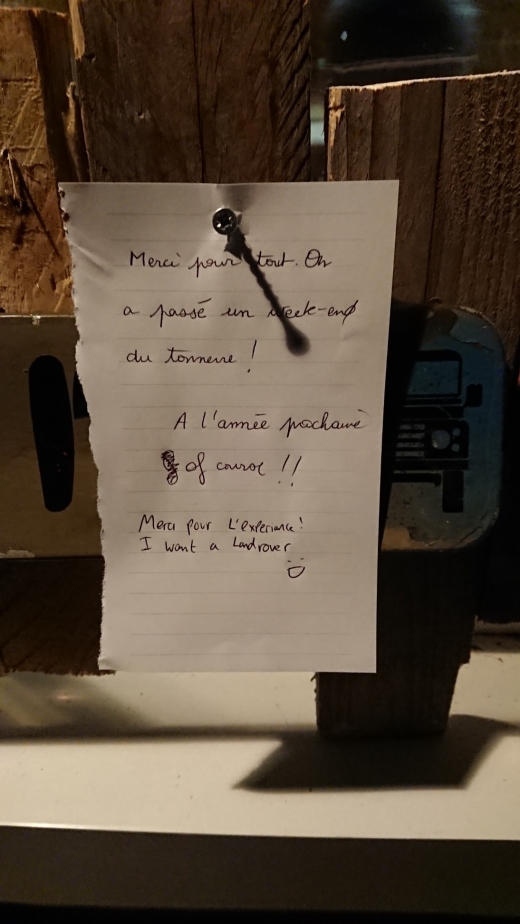 Merci pour tout. On
a passé un week-end
du tonnerre !
A l'année prochaine
of course !!
Merci pour L'experience !
I want a Landrover